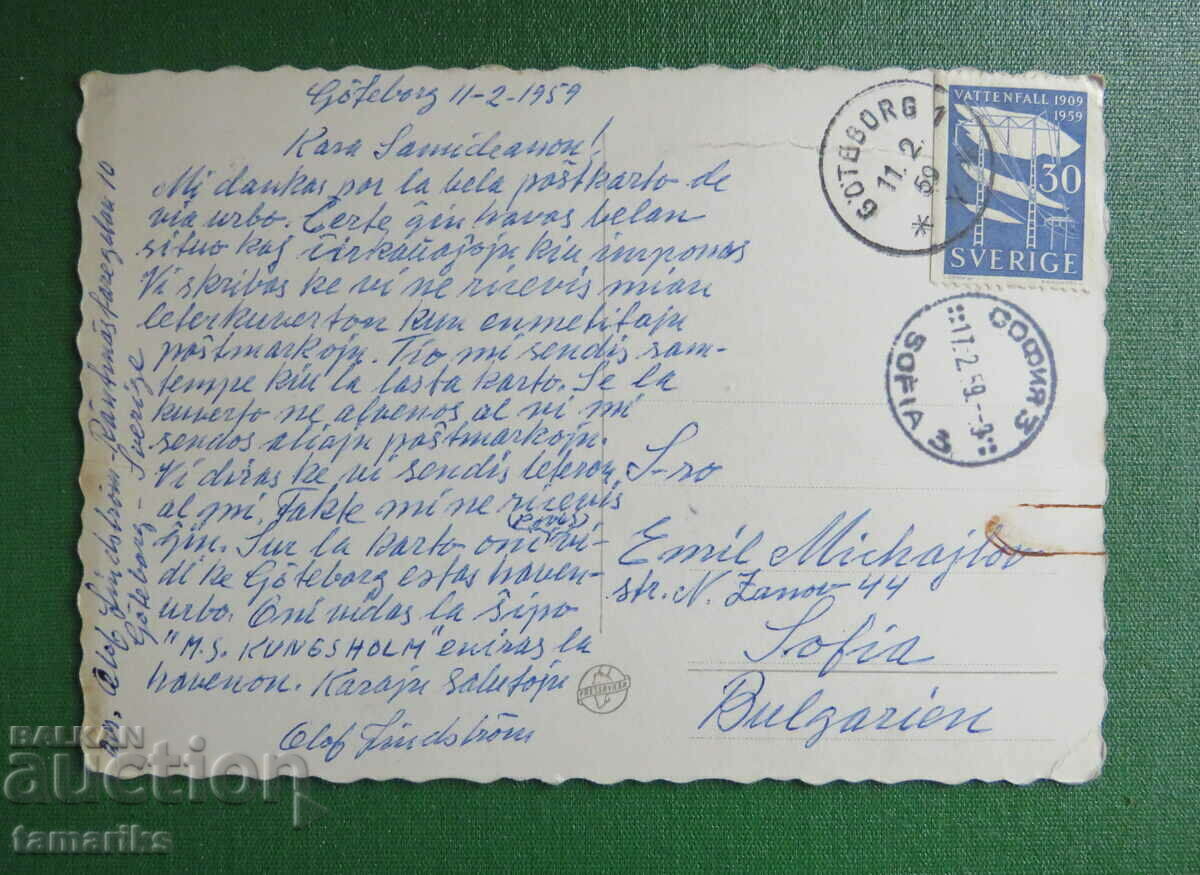 Göteborg 11-2-1959
Kara Samideanon!
Mi dankas por la bela poŝtkarto de
via urbo. Certe ĝin havas belan
situo kaj ĉirkaŭaĵoju kiu imponas
Vi skribas ke vi ne ricevis mian
leterkuverton kun enmetitaju
poŝtmarkoju. Tio mi sendis sam-
tempe kiu la lasta karto. Se la
kuverto ne alvenos al vi mi
sendos aliaju poŝtmarkoju.
Vi diras ke vi sendis leteron
al mi. Fakte mi ne ricevis
ĝin. Sur la karto oni vi-
di ke Göteborg estas haven-
urbo. Oni vidas la ŝipo
"M.S. KUNGSHOLM" eniras la
havenon. Karaju salutoju
Olof Lindström
Olof Lindström
Göteborg - Sverige
GÖTEBORG 1
11. 2.
59
VATTENFALL 1909
1959
30
SVERIGE
СОФИЯ 3
17.2.59.--9
SOFIA 3
S-ro
Emil Michajlov
str. N. Zanov 44
Sofia
Bulgarien
BALKAN
auction
tamariks